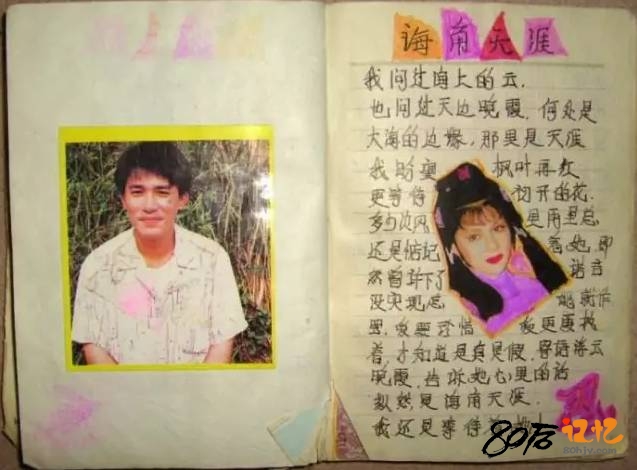 诲角天涯
我问过海上的云.
也问过天边晚霞, 何处是
大海的边缘, 那里是天涯
我盼望 枫叶再红
更等待 初开的花.
多少次风 里雨里总
还是惦记 着她, 即
然留下了 诺言
没实现
里, 我要
着, 才知道是真是假, 浮云
晚霞, 告诉她心里的话
纵然是海角天涯.
我还是等待着她
80后记忆